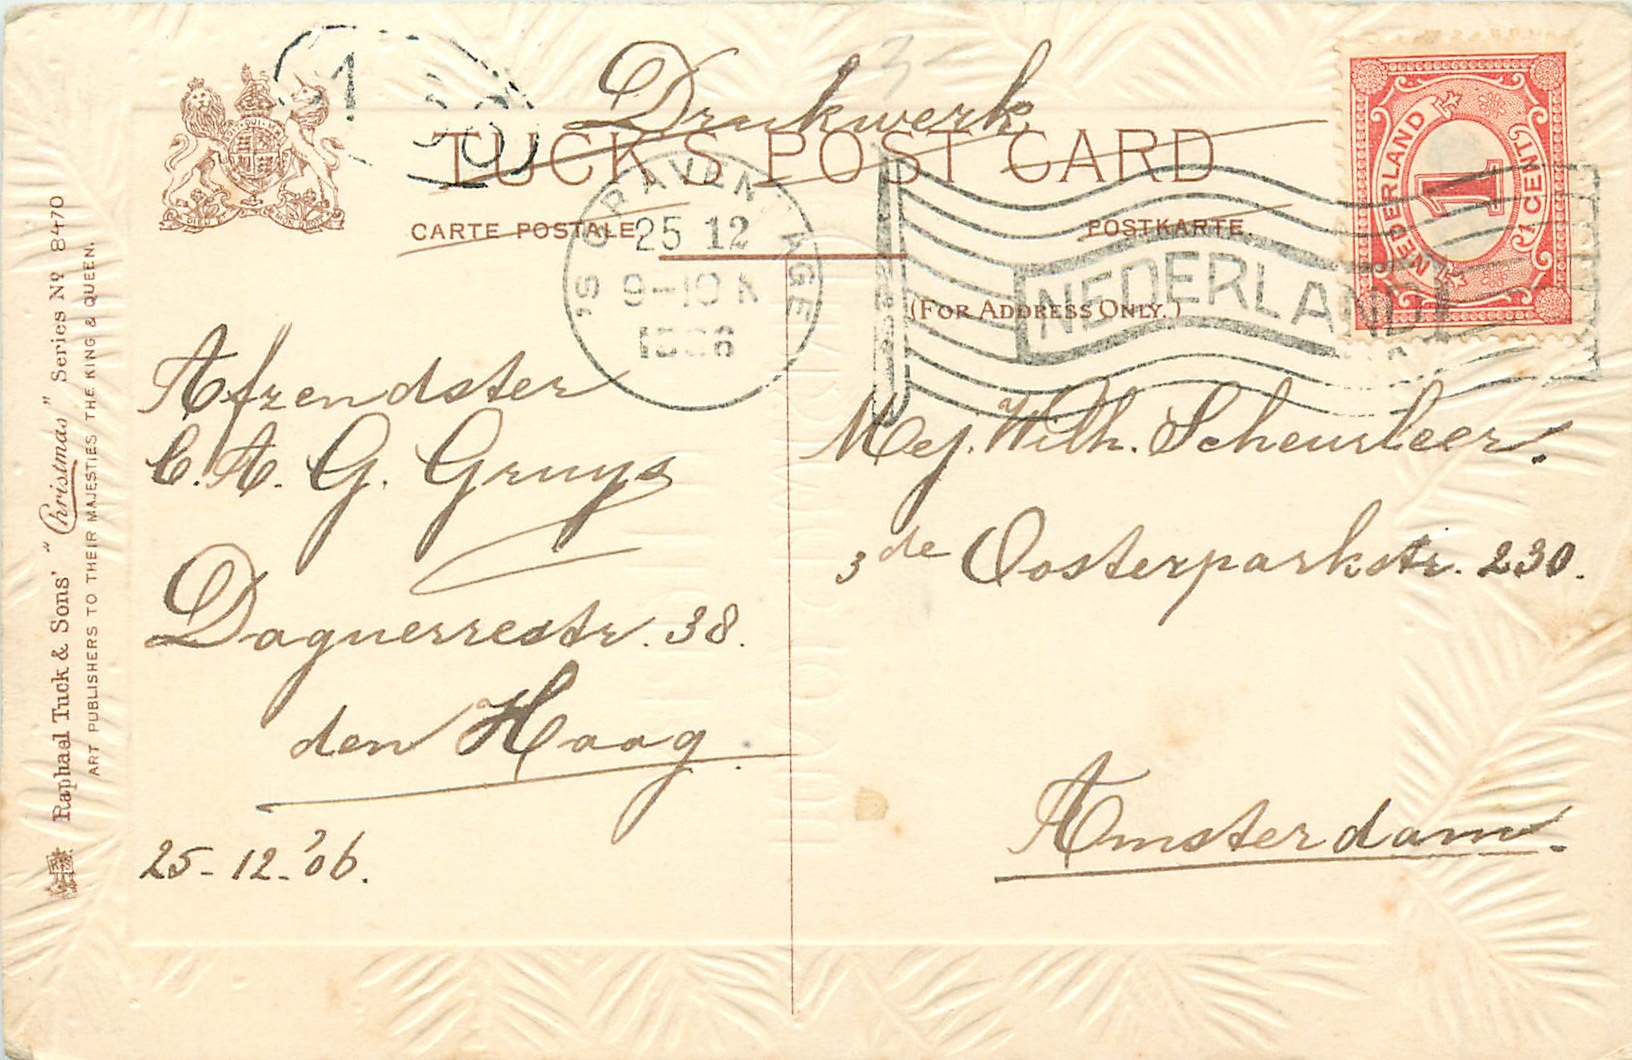 Drukwerk
TUCK'S POST CARD
CARTE POSTALE.
POSTKARTE.
(FOR ADDRESS ONLY.)
'S GRAVENHAGE
25 12
9-10
NEDERLAND
NEDERLAND
1
1 CENT
Afzendster
C. A. G. Gruys
Daguerrestr. 38.
den Haag.
25-12-'06.
Mej. Wilh. Scheurleer.
3de Oosterparkstr. 230.
Amsterdam.
Raphael Tuck & Sons' "Christmas" Series No 8470
ART PUBLISHERS TO THEIR MAJESTIES THE KING & QUEEN.